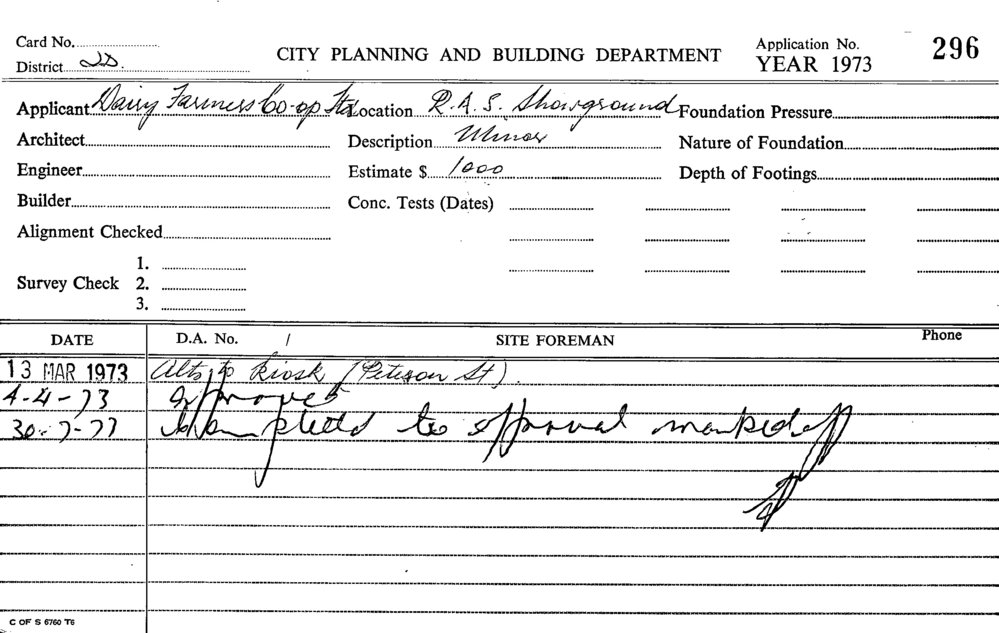 Card No. CITY PLANNING AND BUILDING DEPARTMENT Application No. 296
District YEAR 1973
Applicant Dairy Farmers Co-op Ltd Location R.A.S. Showground Foundation Pressure
Architect Description Minor Nature of Foundation
Engineer Estimate $ 1000 Depth of Footings
Builder Conc. Tests (Dates)
Alignment Checked
1.
Survey Check 2.
3.
DATE D.A. No. / SITE FOREMAN Phone
13 MAR 1973 Alts to Kiosk (Peterson St).
4-4-73 Approved
30-7-77 Completed to approval marked off
C OF S 6760 T6